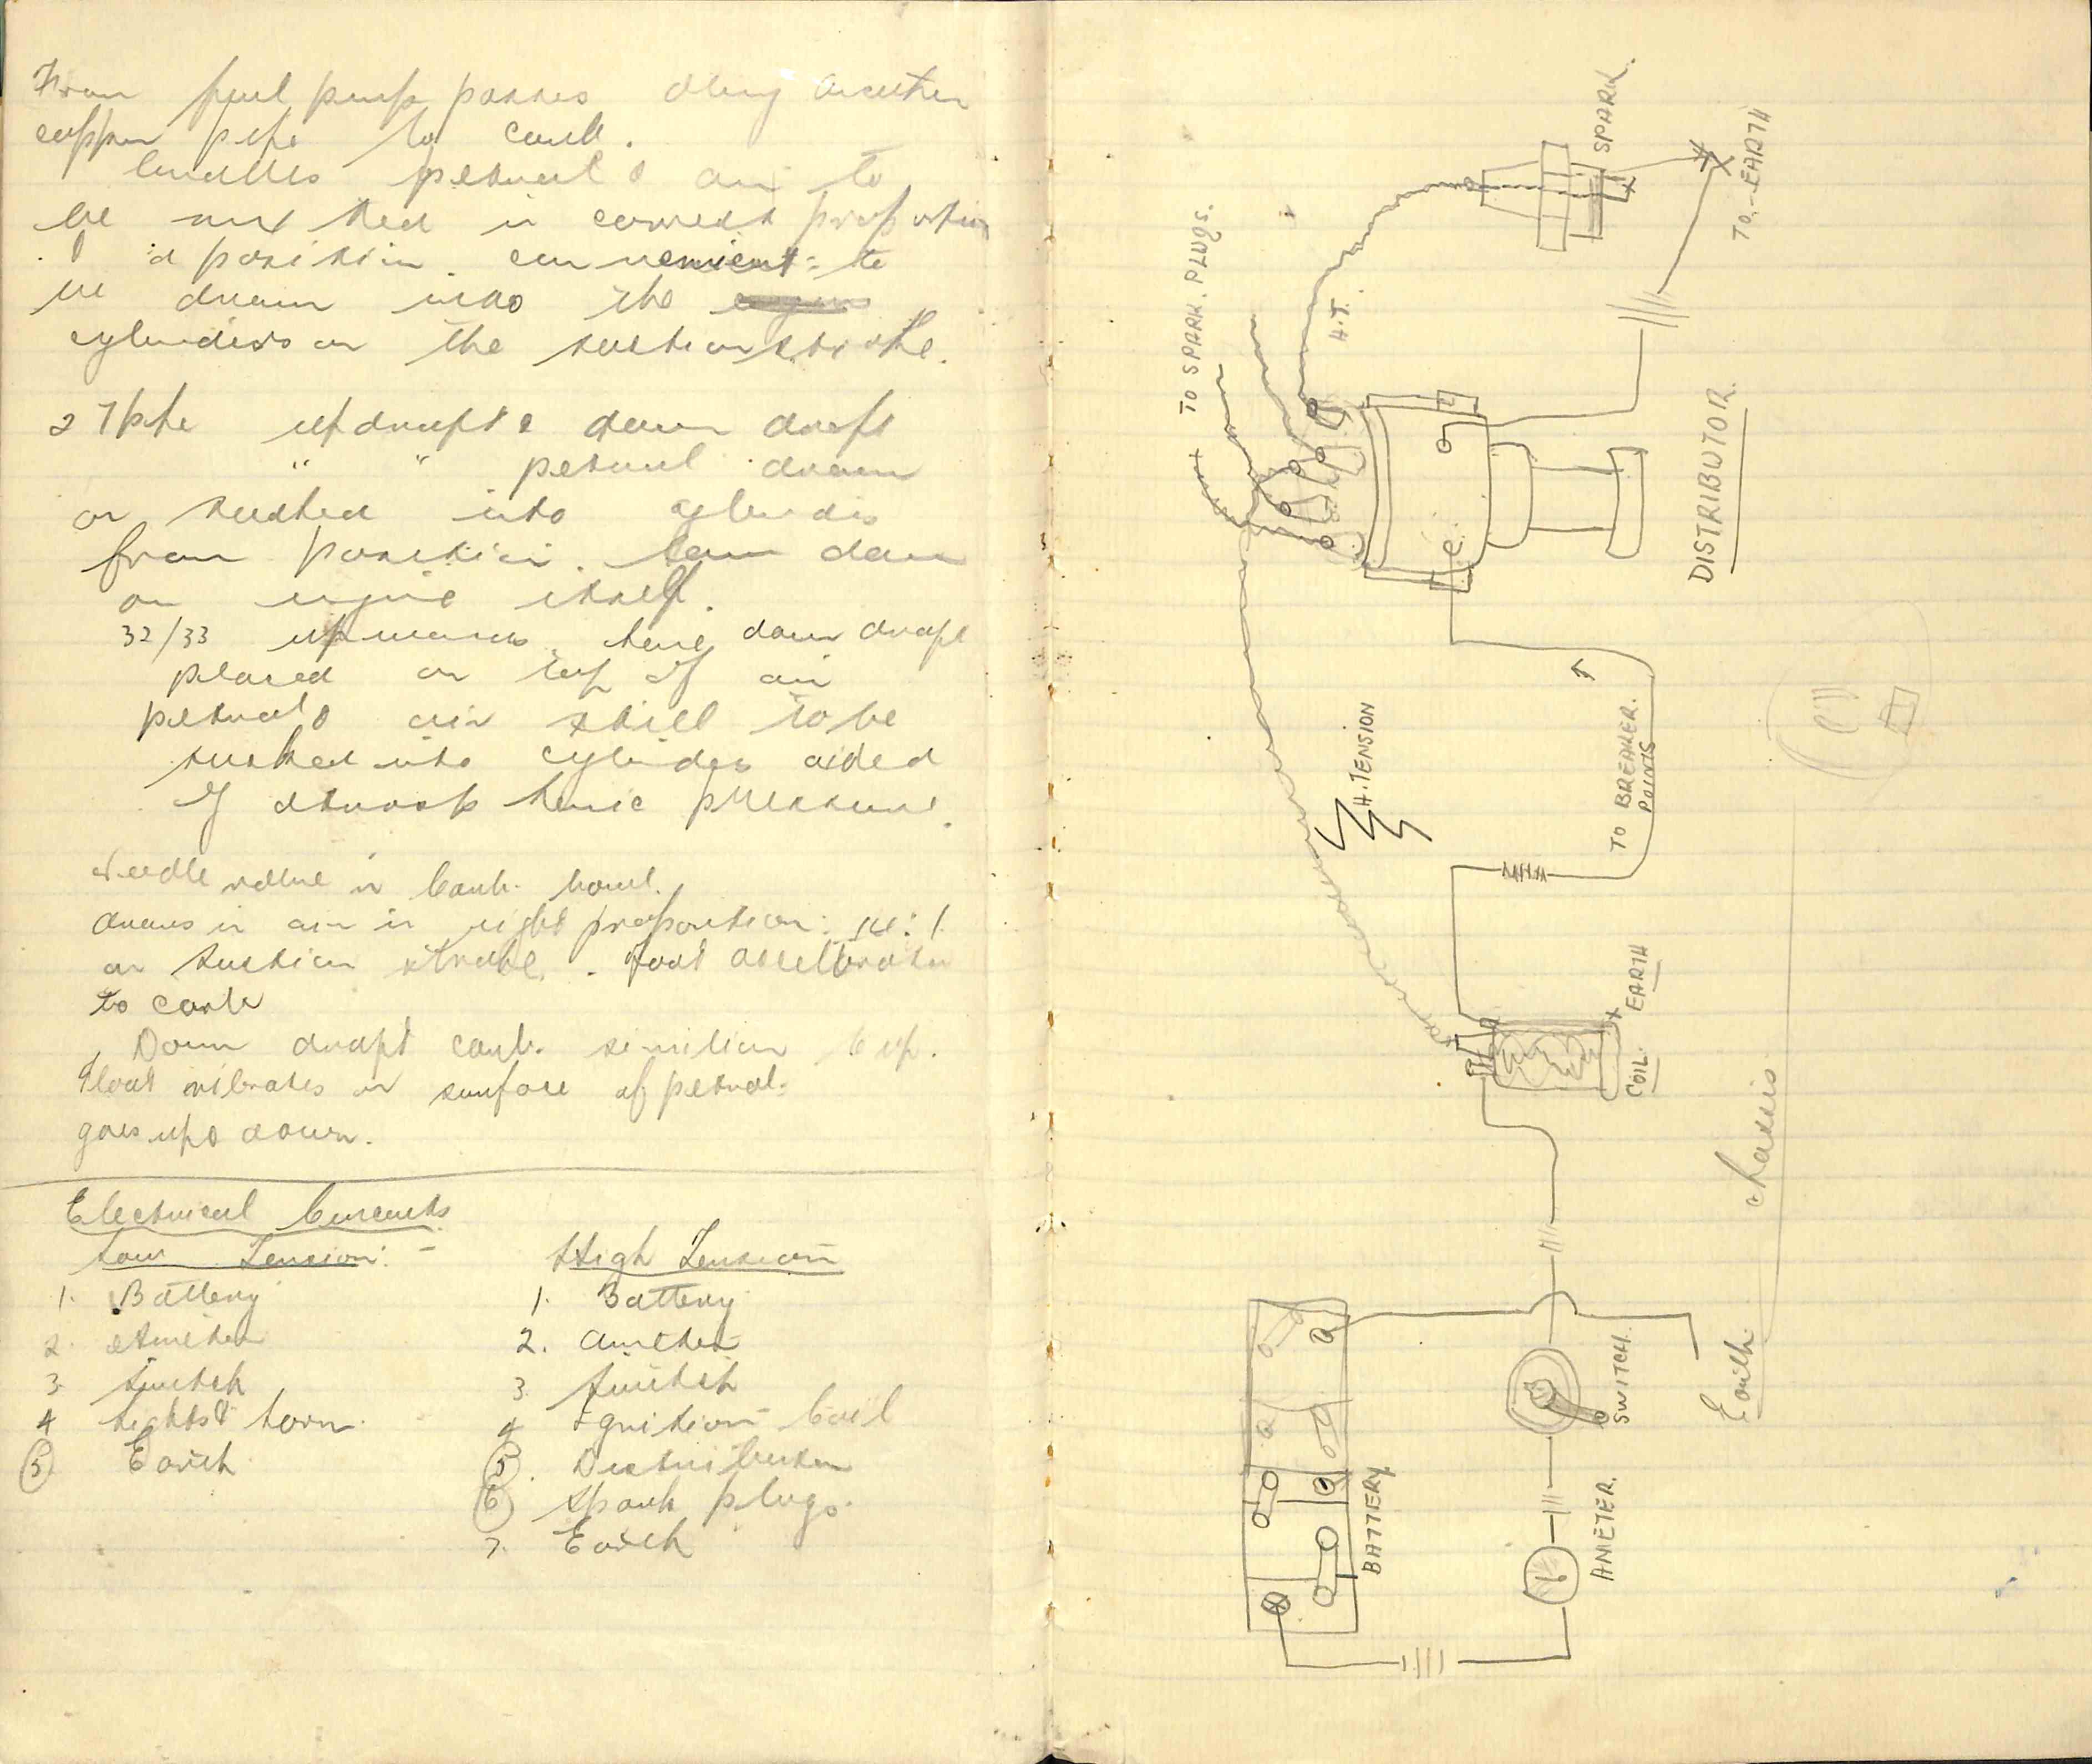 From fuel pump passes along another
copper pipe to carb.
enables petrol & air to
be mixed in correct proportion
& position convenient to
be drawn into the engine
cylinders on the suction stroke.
2 Type updraft & down draft
" " petrol drawn
or sucked into cylinders
from position low down
on engine itself.
32/33 upwards have down draft
placed on top of air
petrol & air still to be
sucked into cylinders aided
by atmospheric pressure.
Needle valve in carb. bowl.
draws in air in right proportion: 14:1
on suction stroke. Foot accellerator
to carb
Down draft carb. similiar to up.
Float vibrates on surface of petrol.
goes up & down.
Electrical Circuits
Low Tension: -
1. Battery
2. Ameter
3. Switch
4 Lights & horn
5 Earth
High Tension
1. Battery
2. Ameter
3. Switch
4 Ignition Coil
5. Distributor
6 Spark plugs.
7. Earth
TO SPARK. PLUGS.
H.T.
SPARK.
TO. EARTH
DISTRIBUTOR.
H.TENSION
TO BREAKER.
POINTS
COIL. EARTH
chassis
Earth.
BATTERY
SWITCH.
AMETER.